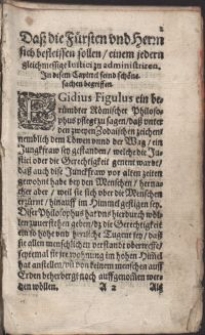 2
Daß die Fürsten vnd Herrn
sich befleissen sollen / einem jedern
gleichmessige Iustici zu administriren.
In disem Capitel seind schöne
sachen begriffen.
EGidius Figulus ein be-
rümbter Römischer Philoso-
phus pflegt zu sagen / daß vnter
den zweyen Zodaischen zeichen /
nemblich dem Löwen vnnd der Wag / ein
Jungkfraw sey gestanden / welche die Ju-
stici oder die Gerechtigkeit genent war-
de / daß auch dise Junckfraw vor alten zeiten
gewohnt habe bey den Menschen / herna-
cher aber / weil sie sich vber die Menschen
erzürnt / hinauff im Himmel gestigen sey.
Diser Philosophus hat vns hierdurch wöl-
len zuuerstehen geben / dz die Gerechtigkeit
ein so hohe vnd herrliche Tugent sey / daß
sie allen menschlichen verstandt vbertreffe /
seytemal sie jre wohnung im hohen Himel
hat anstellen / vñ von keinem menschen auff
Erden beherbergt noch auffgenom̃en wer-
den wöllen. A 2 Als